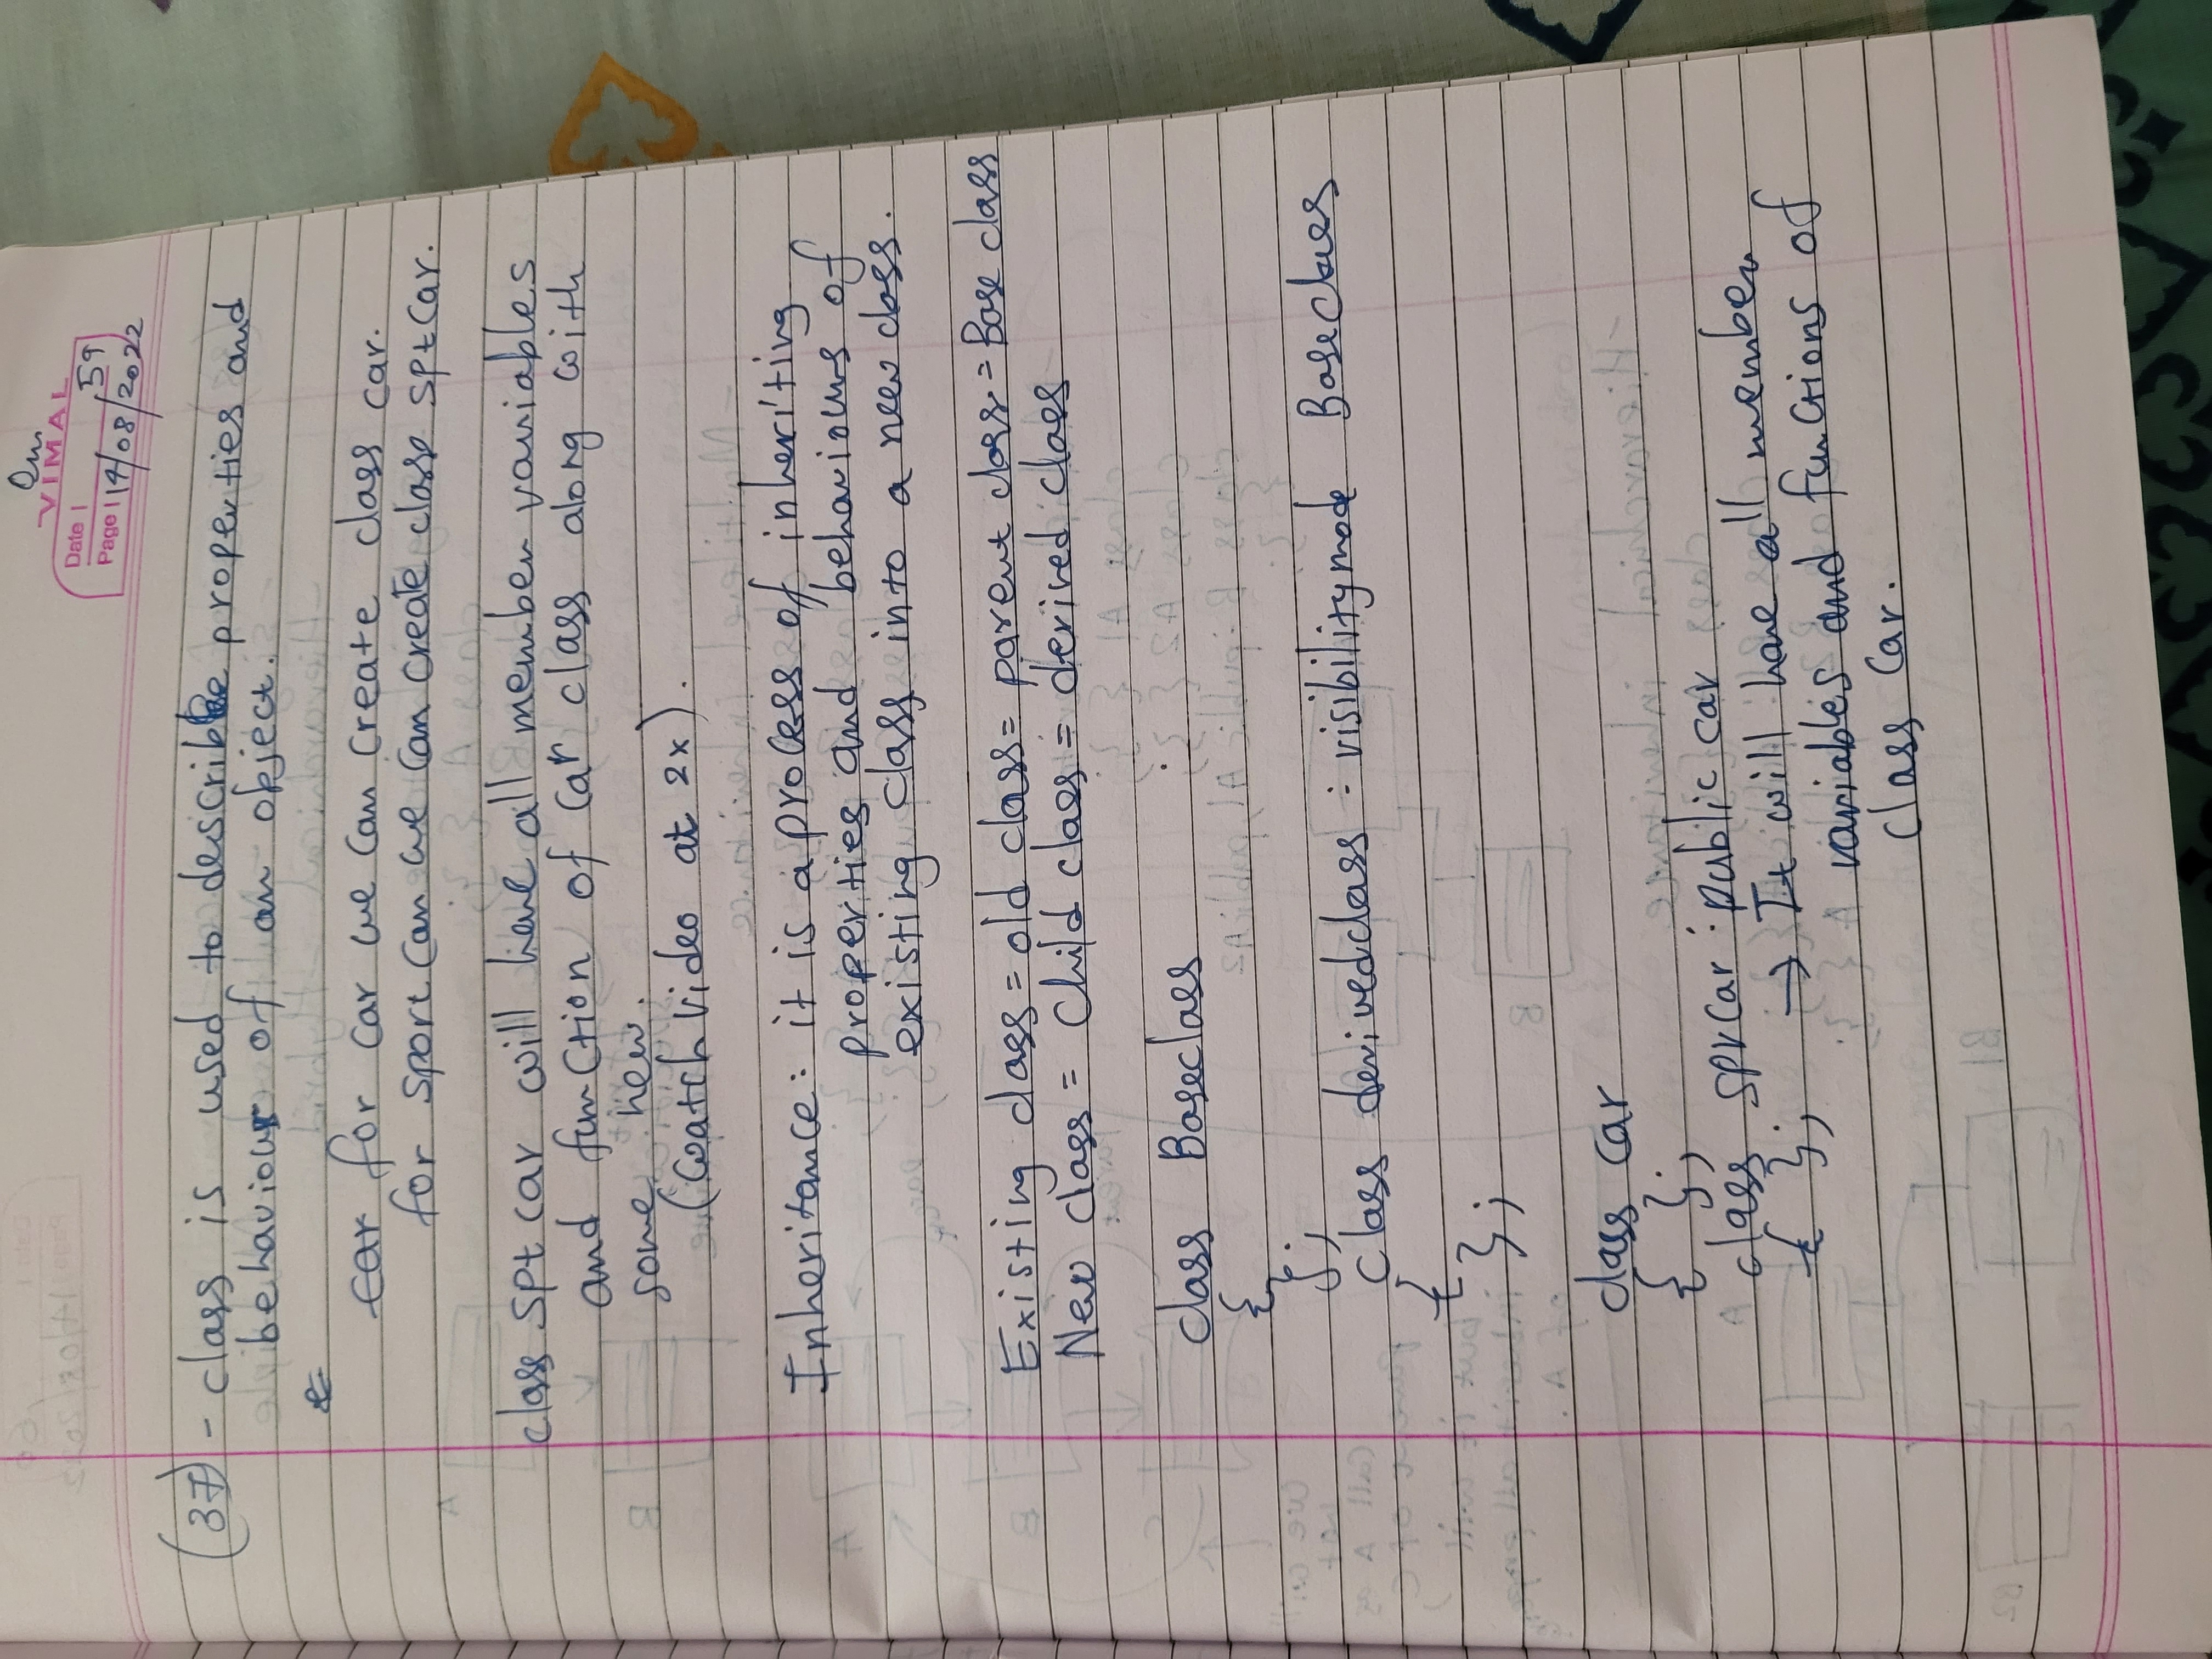 Om
VIMAL
Date | 59
Page | 14/08/2022
(37) - class is used to describe properties and
behaviour of an object.
car for car we can create class car.
for sport can we can create class sptcar.
class sptcar will have all member variables
and function of car class along with
some new.
(Watch video at 2x).
Inheritance: it is a process of inheriting
properties and behaviours of
existing class into a new class.
Existing class = old class = parent class = Base class
New class = Child class = derived class
class Baseclass
{
};
class derivedclass : visibilitymode Baseclass
{
};
class car
{ };
class sprcar : public car
{ }; → It will have all member
variables and functions of
class Car.